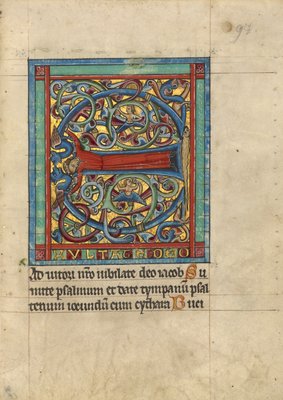 97
E
XVLTA DEO
Ad iutori nr̄o iubilate deo iacob Su
mite psalmum et date tympanū psal
terium iocundū cum cythara Buci